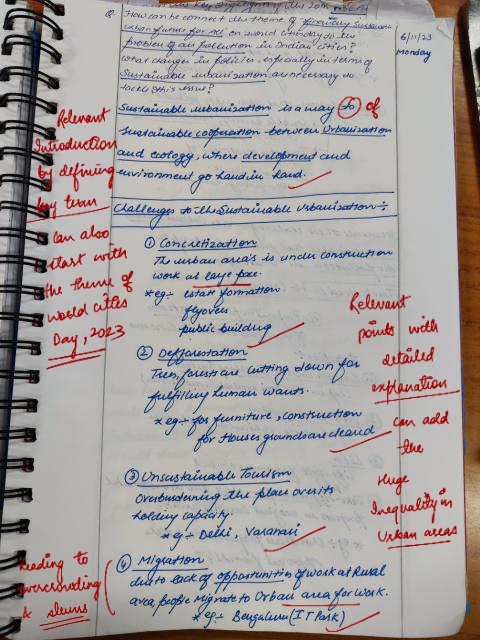 Q. How can be connect the theme of "financing sustainable
urban future for All on world citiesday to the
problem of air pollution in Indian cities?
what changes in policies, especially in terms of
Sustainable urbanization, are necessary to
tackle this issue?
6/11/23
Monday
Sustainable urbanization is a way to of
sustainable cooperation between Urbanization
and ecology, where development and
environment go hand in hand.
Relevant
Introduction
by defining
key term
can also
start with
the theme of
world cities
Day, 2023
Challenges to the Sustainable Urbanization :-
① Concretization
The urban area's is under construction
work at large pace.
* eg:- estate formation
flyovers
public building
② Defforestation
Trees, forests are cutting down for
fulfilling human wants.
* eg:- for furniture, construction
for Houses grounds are cleared
Relevant
points with
detailed
explanation
can add
the
Huge
Inequality in
Urban areas
③ Unsustainable Tourism
Overburdening the place over its
holding capacity.
* eg:- Delhi, Varanasi
④ Migration
due to lack of opportunities of work at Rural
area, people Migrate to Urban area for work.
* eg:- Bengaluru (IT Park)
leading to
overcrowding
& slums